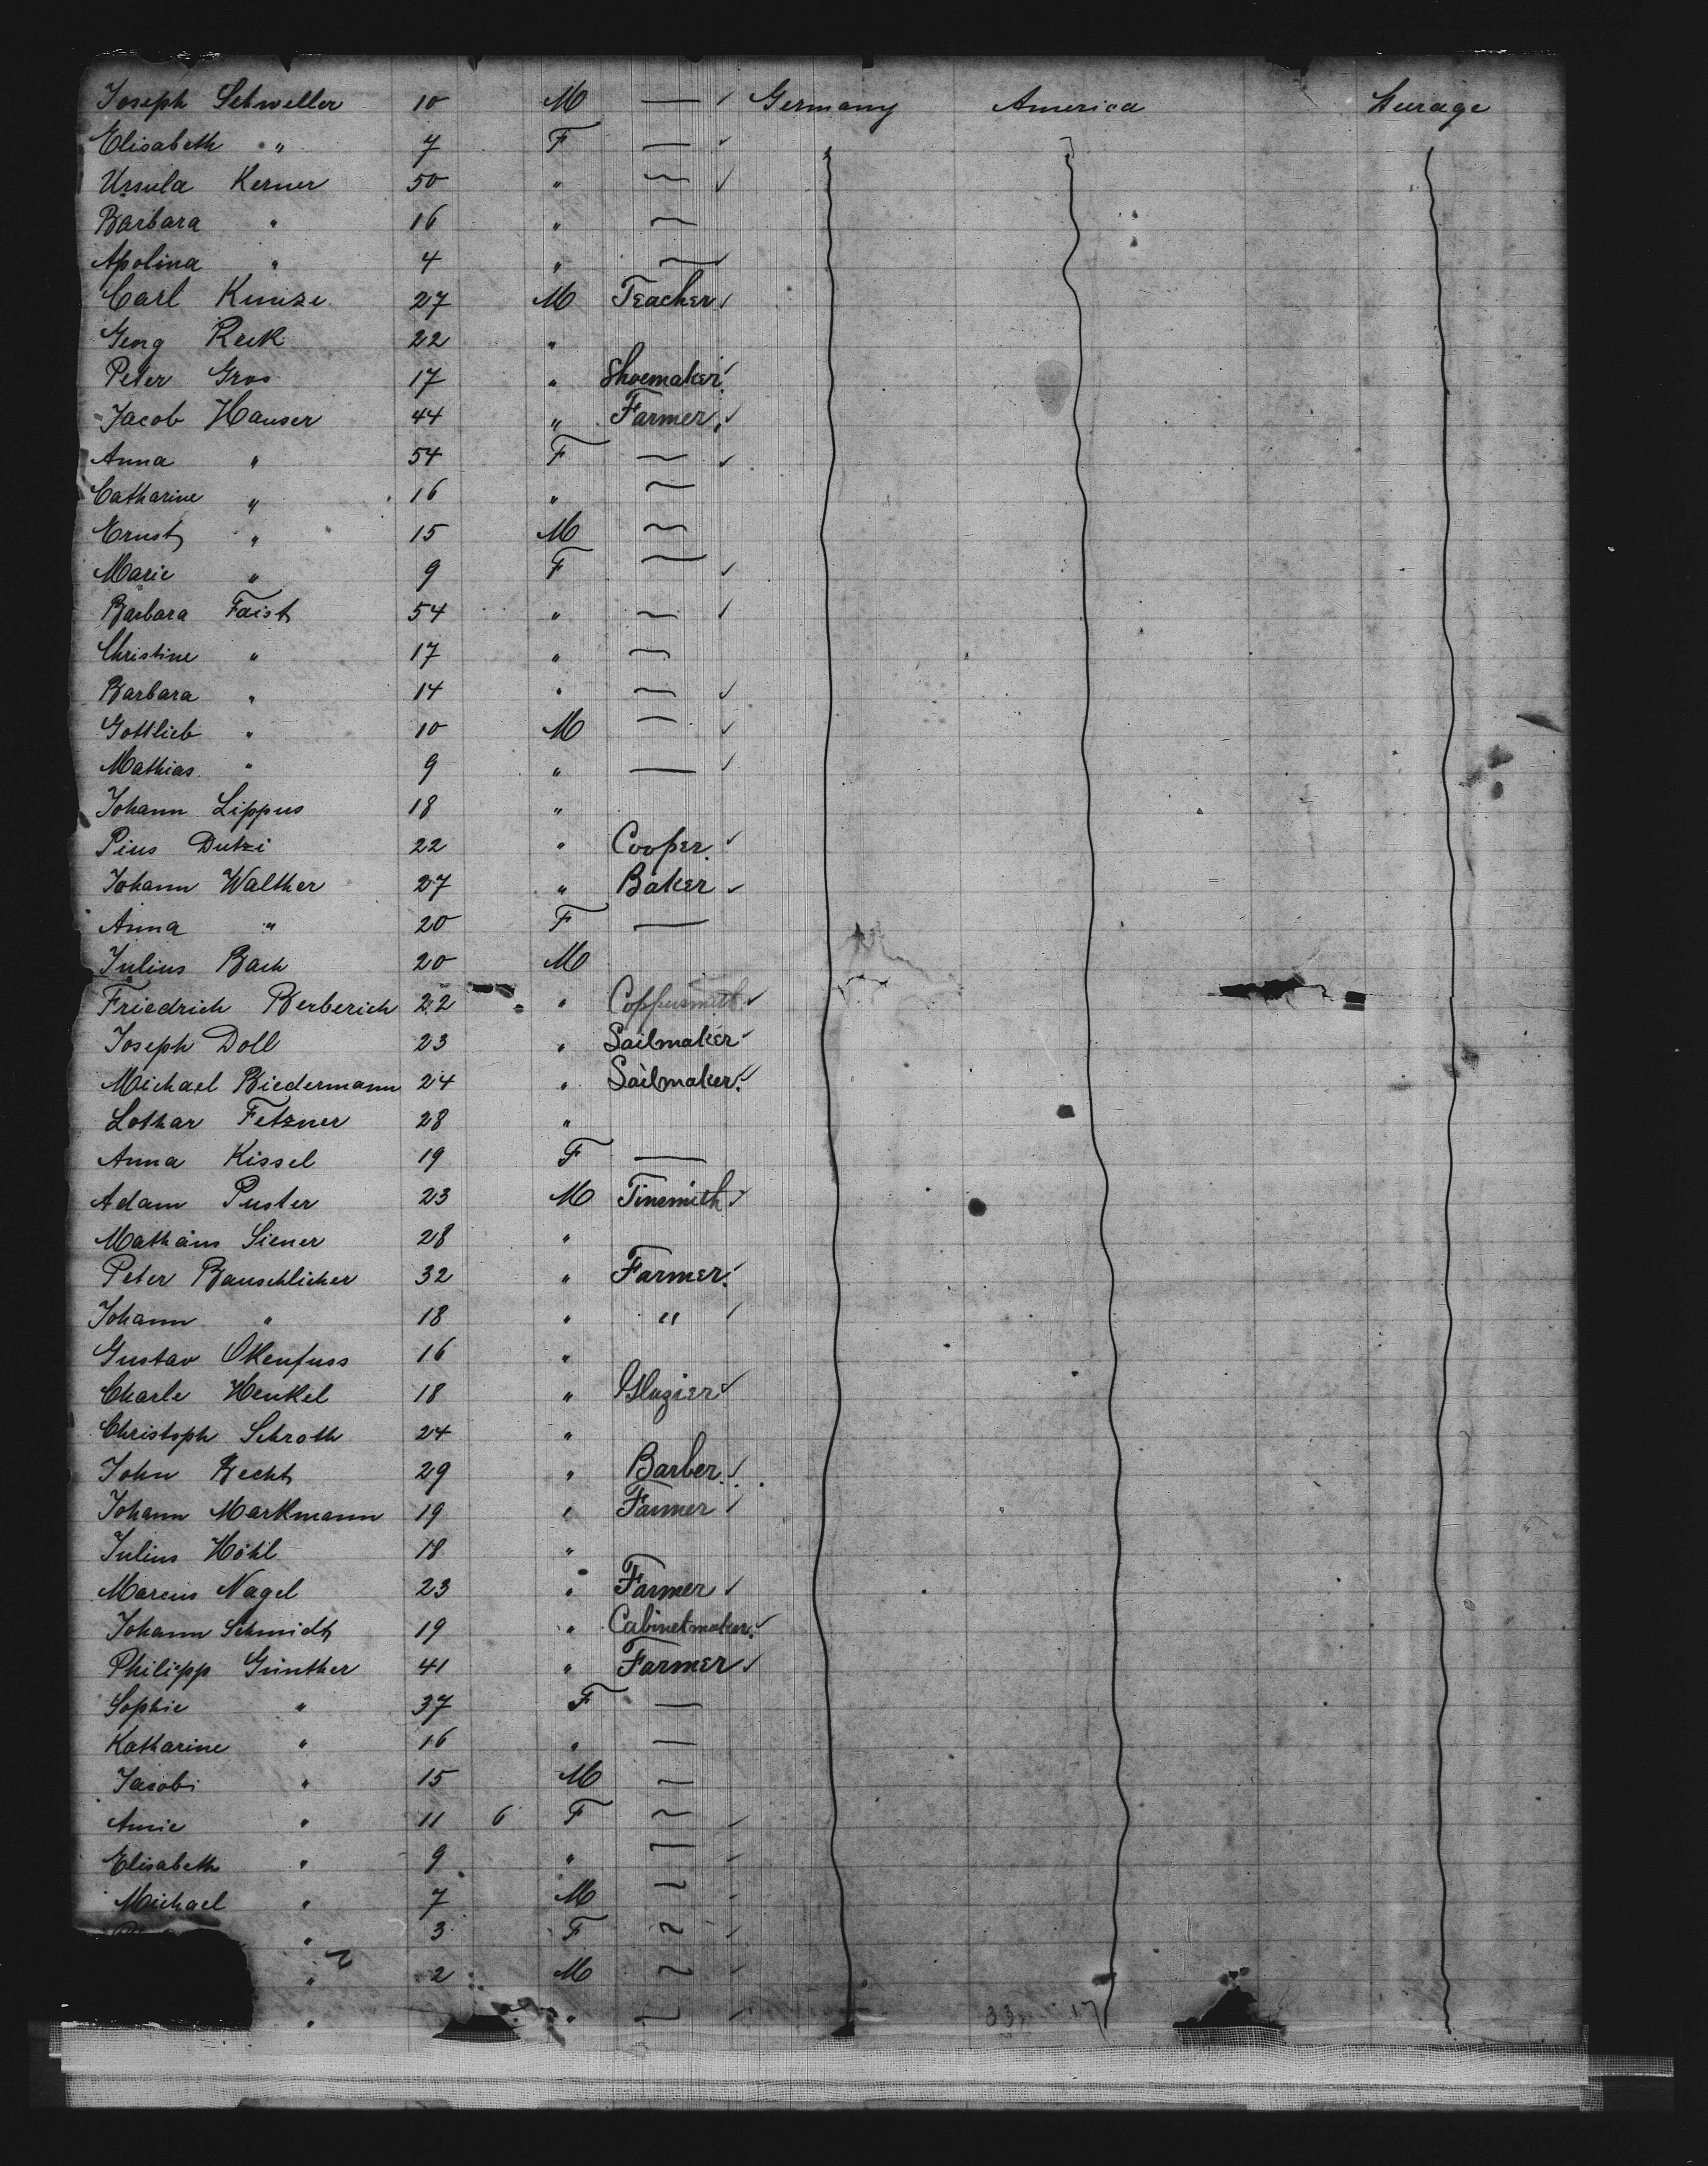 Joseph Schweller 10 M — ✓ Germany America Steerage
Elisabeth " 7 F — ✓
Ursula Kerner 50 " — ✓
Barbara " 16 " —
Apolina " 4 " — ✓
Carl Kunze 27 M Teacher ✓
Georg Reck 22 "
Peter Gros 17 " Shoemaker ✓
Jacob Hauser 44 " Farmer ✓
Anna " 54 F — ✓
Catharine " 16 " —
Ernst " 15 M —
Marie " 9 F — ✓
Barbara Faist 54 " — ✓
Christine " 17 " —
Barbara " 14 " — ✓
Gottlieb " 10 M — ✓
Mathias " 9 " — ✓
Johann Lippus 18 "
Pius Dutzi 22 " Cooper ✓
Johann Walther 27 " Baker ✓
Anna " 20 F —
Julius Bach 20 M
Friedrich Berberich 22 " Coppersmith ✓
Joseph Doll 23 " Sailmaker ✓
Michael Biedermann 24 " Sailmaker ✓
Lothar Fetzner 28 "
Anna Kissel 19 F —
Adam Puster 23 M Tinsmith ✓
Mathäus Siener 28 "
Peter Bauschlicher 32 " Farmer ✓
Johann " 18 " " ✓
Gustav Okenfuss 16 "
Charle Henkel 18 " Glazier ✓
Christoph Schroth 24 "
John Becht 29 " Barber ✓
Johann Markmann 19 " Farmer ✓
Julius Höhl 18 "
Marcus Nagel 23 " Farmer ✓
Johann Schmidt 19 " Cabinetmaker ✓
Philipp Günther 41 " Farmer ✓
Sophie " 37 F —
Katharine " 16 " —
Jacob " 15 M —
Amie " 11 6 F — ✓
Elisabeth " 9 " — ✓
Michael " 7 M — ✓
" 3 F — ✓
" 2 M — ✓
" " — ✓